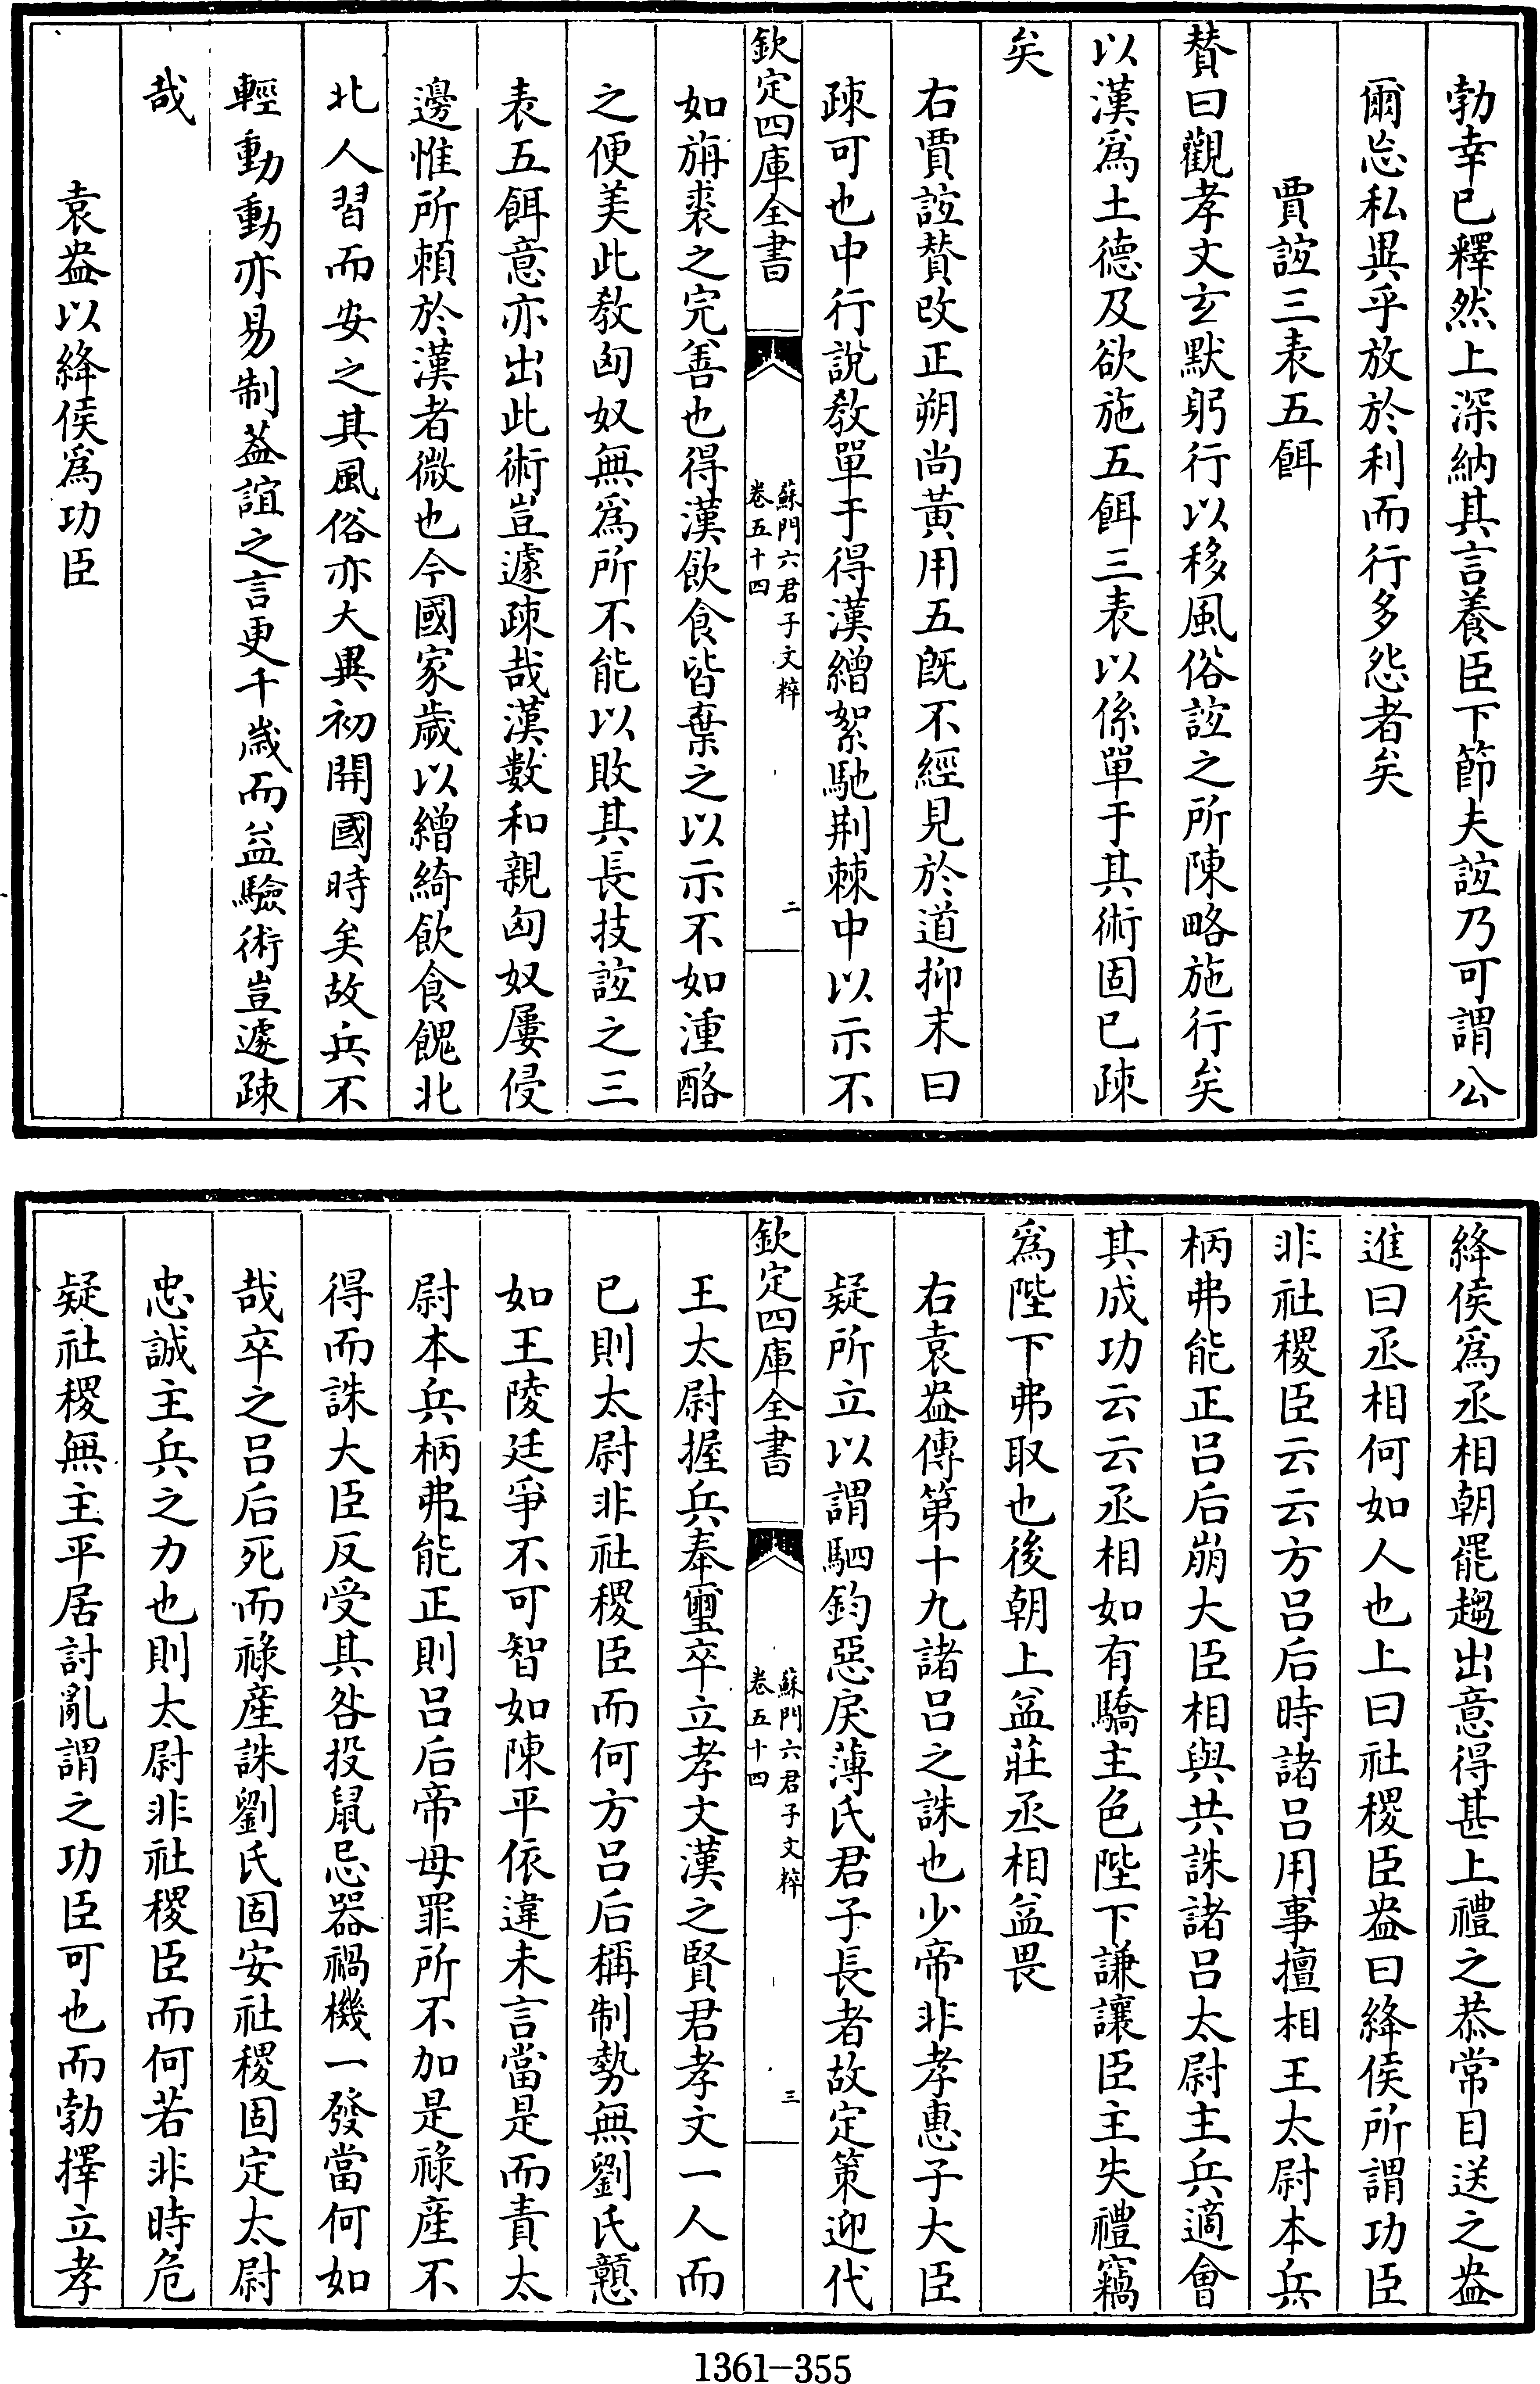 勃幸已釋然上深納其言養臣下節夫誼乃可謂公
爾忘私異乎放於利而行多怨者矣
賈誼三表五餌
賛曰觀孝文玄默躬行以移風俗誼之所陳略施行矣
以漢爲土德及欲施五餌三表以係單于其術固已疎
矣
右賈誼賛改正朔尚黃用五既不經見於道抑末曰
疎可也中行說教單于得漢繒絮馳荆棘中以示不
欽定四庫全書
蘇門六君子文粹
卷五十四
二
如旃裘之完善也得漢飲食皆棄之以示不如湩酪
之便美此教匈奴無爲所不能以敗其長技誼之三
表五餌意亦出此術豈遽疎哉漢數和親匈奴屢侵
邊惟所頼於漢者微也今國家歲以繒綺飲食餽北
北人習而安之其風俗亦大異初開國時矣故兵不
輕動動亦易制葢誼之言更千歲而益驗術豈遽疎
哉
袁盎以絳侯爲功臣
絳侯爲丞相朝罷趨出意得甚上禮之恭常目送之盎
進曰丞相何如人也上曰社稷臣盎曰絳侯所謂功臣
非社稷臣云云方吕后時諸吕用事擅相王太尉本兵
柄弗能正吕后崩大臣相與共誅諸吕太尉主兵適會
其成功云云丞相如有驕主色陛下謙讓臣主失禮竊
爲陛下弗取也後朝上益莊丞相益畏
右袁盎傳第十九諸吕之誅也少帝非孝惠子大臣
疑所立以謂駟鈞惡戾薄氏君子長者故定策迎代
欽定四庫全書
蘇門六君子文粹
卷五十四
三
王太尉握兵奉璽卒立孝文漢之賢君孝文一人而
已則太尉非社稷臣而何方吕后稱制勢無劉氏戇
如王陵廷爭不可智如陳平依違未言當是而責太
尉本兵柄弗能正則吕后帝母罪所不加是祿産不
得而誅大臣反受其咎投鼠忌器禍機一發當何如
哉卒之吕后死而祿産誅劉氏固安社稷固定太尉
忠誠主兵之力也則太尉非社稷臣而何若非時危
疑社稷無主平居討亂謂之功臣可也而勃擇立孝
1361-355